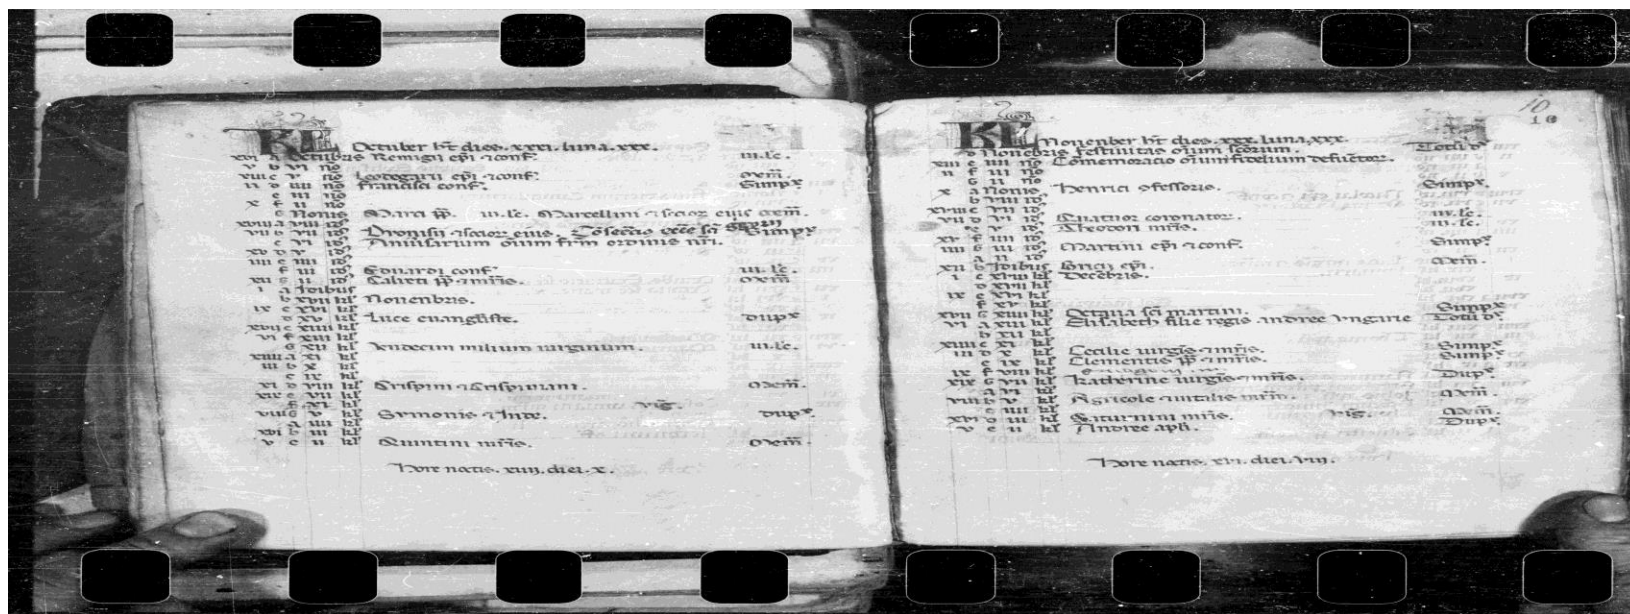 KL October h̅t dies. xxxi. luna. xxx.
xvi a Octub̅ris Remigii ep̅i ⁊ conf̅. iii. lc̅.
v b vi no̅
xiii c v no̅ Leodegarii ep̅i ⁊ conf̅. Mem̅.
ii d iiii no̅ francisci conf̅. Simpx
e iii no̅
x f ii no̅
G Nonis Marci pp̅. iii. lc̅. Marcellini ⁊ socior̅ eius mem̅.
xviii a viii id̅
vii b vii id̅ Dyonisii ⁊ socior̅ eius. Simpx
c vi id̅ Aniu̅sarium om̅ium fr̅m ordinis nr̅i.
xv d v id̅
iiii e iiii id̅
f iii id̅ Eduardi conf̅. iii. lc̅.
xii G ii id̅ Calixti pp̅ ⁊ mr̅is. Mem̅
i a Idibus
b xvii kl̅ Nouenbris.
ix c xvi kl̅
d xv kl̅ Luce euangl̅iste. dupx
xvii e xiiii kl̅
vi f xiii kl̅
G xii kl̅ Vndecim milium uirginum. iii. lc̅.
xiiii a xi kl̅
iii b x kl̅
c ix kl̅
xi d viii kl̅ Crispini ⁊ Crispiniani. Mem̅.
xix e vii kl̅
f vi kl̅ vig̅.
viii G v kl̅ Symonis ⁊ Iude. dupx.
a iiii kl̅
xvi b iii kl̅
v c ii kl̅ Quintini mr̅is. Mem̅.
Hore noctis. xiiii. diei. x.
10
10
KL Nouenber h̅t dies. xxx. luna. xxx.
d Noueb̅ris festiuitas om̅ium sc̅orum. Totu̅ dx
xiii e iiii no̅ Co̅memoracio om̅ium fidelium defu̅ctor̅.
ii f iii no̅
G ii no̅
x a Nonis Henrici ɔfessoris. Simpx.
b viii id̅
xviii c vii id̅
vii d vi id̅ Quatuor coronator̅. iii. lc̅
e v id̅ Theodori mr̅is. iii. lc̅.
xv f iiii id̅
iiii G iii id̅ Martini ep̅i ⁊ conf̅. Simpx
a ii id̅
xii b Idibus Bricii ep̅i. Mem̅.
i c xviii kl̅ Dece̅bris.
d xvii kl̅
ix e xvi kl̅
f xv kl̅
xvii G xiiii kl̅ Octaua sc̅i martini. Simpx
vi a xiii kl̅ Elisabeth filie regis andree vngarie Totu̅ dx.
b xii kl̅
xiiii c xi kl̅
iii d x kl̅ Cecilie uirgi̅s ⁊ mr̅is. Simpx
e ix kl̅ Clementis pp̅ ⁊ mr̅is. Simpx
ix f viii kl̅
xix G vii kl̅ Katherine uirgi̅s ⁊ mr̅is. Dupx.
a vi kl̅
viii b v kl̅ Agricole ⁊ uitalis mr̅m. Mem̅.
c iiii kl̅
xvi d iii kl̅ Saturnini mr̅is. vig̅. Mem̅.
v e ii kl̅ Andree apl̅i. Dupx.
Hore noctis. xvi. diei. viii.